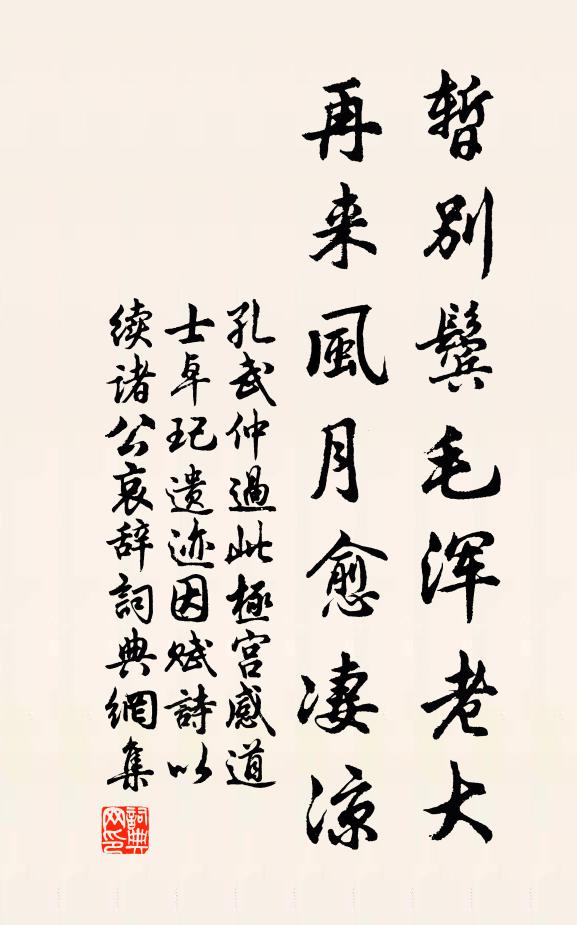 暫別鬓毛浑老大
再来風月愈凄凉
孔武仲過此極宫感道
士卓玘遗迹因赋詩以
续诸公哀辞詞典網集
詞典网印